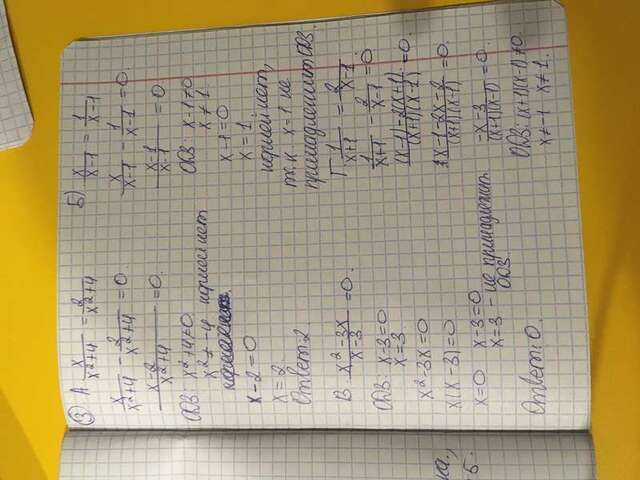 ③ А x/(x²+4) = 2/(x²+4)
x/(x²+4) - 2/(x²+4) = 0
(x-2)/(x²+4) = 0.
ОДЗ: x²+4≠0
x² ≠ -4 корней нет
x-2=0
x=2
Ответ 2.
В (x²-3x)/(x-3) = 0.
ОДЗ: x-3=0
x=3
x²-3x=0
x(x-3)=0
x=0 x-3=0
x=3 - не принадлежит
ОДЗ.
Ответ: 0.
Б) x/(x-1) = 1/(x-1)
x/(x-1) - 1/(x-1) = 0.
(x-1)/(x-1) = 0.
ОДЗ: x-1≠0
x≠1
x-1=0
x=1
корней нет,
т.к x=1 не
принадлежит ОДЗ.
Г. 1/(x+1) = 2/(x-1)
1/(x+1) - 2/(x-1) = 0
((x-1)-2(x+1))/((x+1)(x-1)) = 0.
(x-1-2x-2)/((x+1)(x-1)) = 0.
(-x-3)/((x+1)(x-1)) = 0.
ОДЗ: (x+1)(x-1)≠0
x≠-1 x≠1.
ка.,
5.